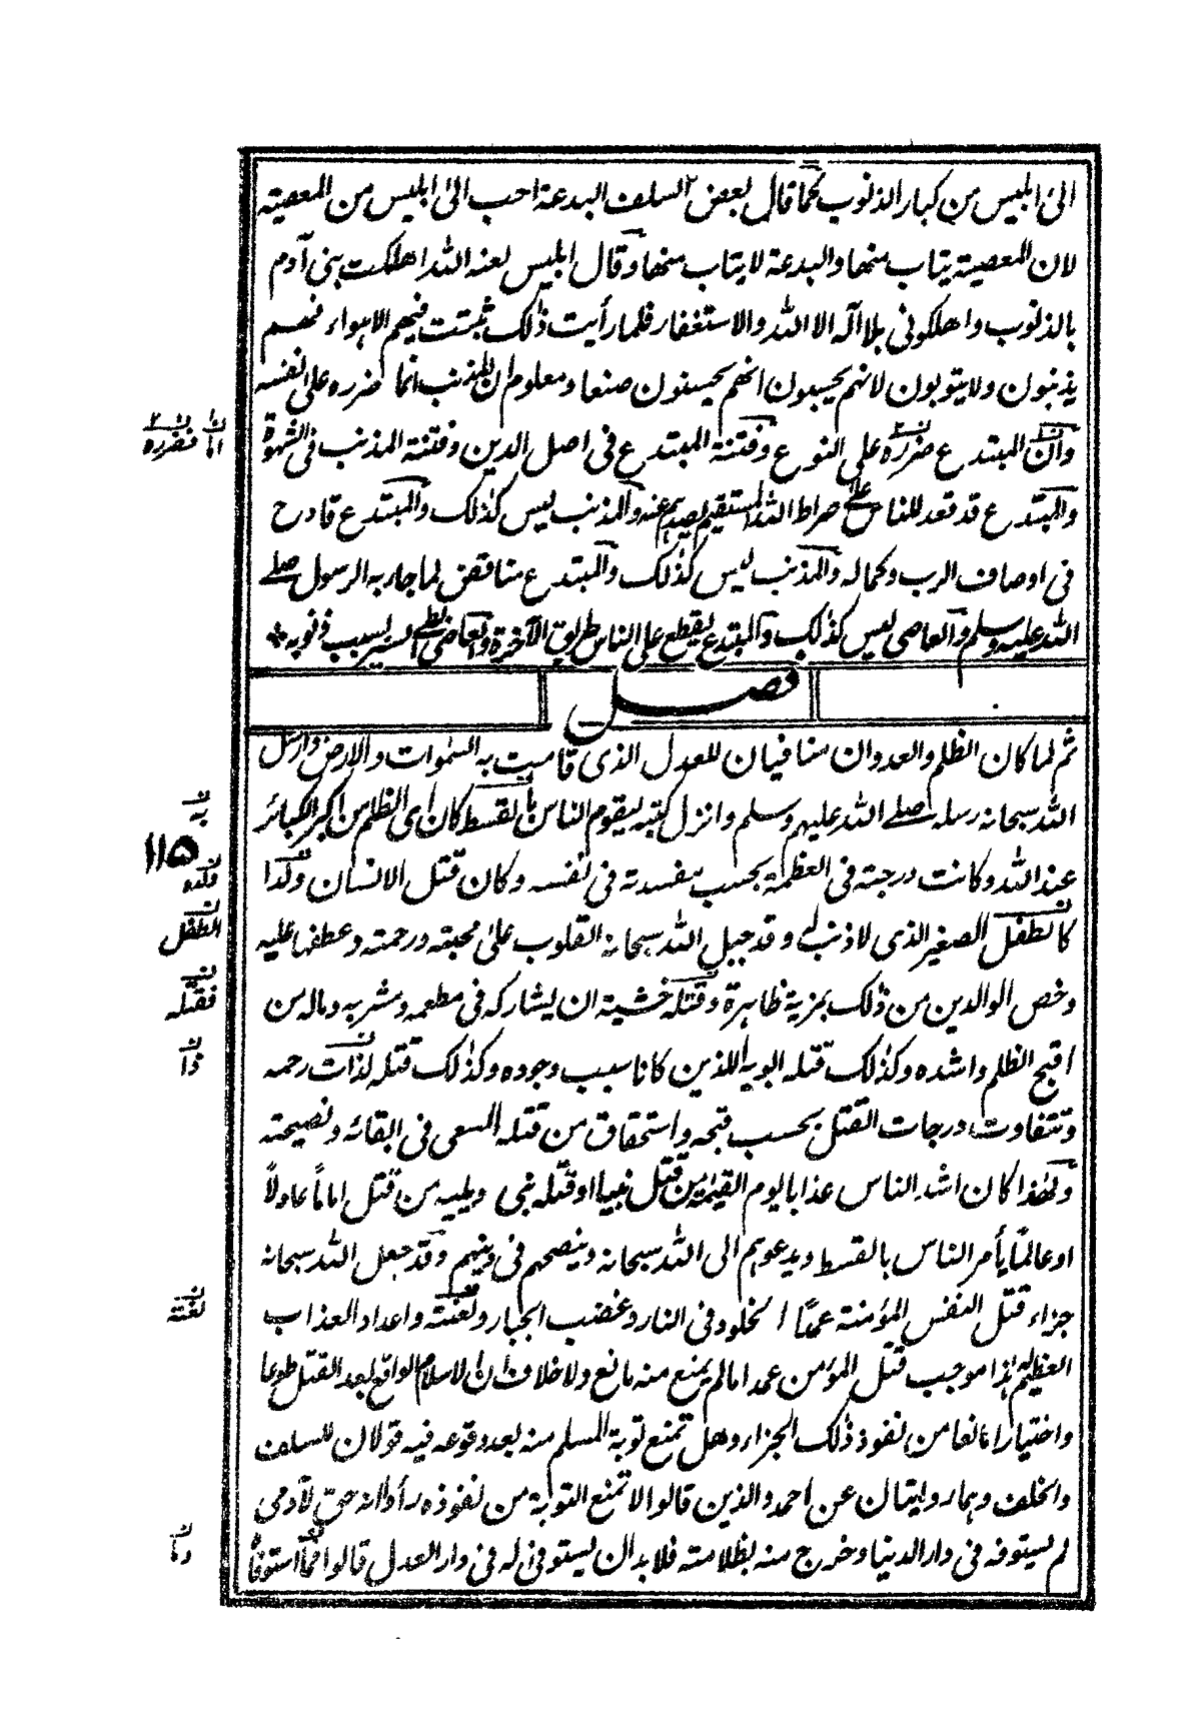 الى ابليس من كبار الذنوب كما قال بعض السلف البدعة احب الى ابليس من المعصية
لان المعصية يتاب منها والبدعة لا يتاب منها وقال ابليس لعنه الله اهلكت بنى آدم
بالذنوب واهلكونى بلا اله الا الله والاستغفار فلما رأيت ذلك ثبتت فيهم الاهواء فهم
يذنبون ولا يتوبون لانهم يحسبون انهم يحسنون صنعا ومعلوم ان المذنب انما ضرره على نفسه
وان المبتدع ضرره على النوع وفتنة المبتدع فى اصل الدين وفتنة المذنب فى الشهوة
اما فضرره
والمبتدع قد قعد للناس على صراط الله المستقيم يصدهم عنه والمذنب ليس كذلك والمبتدع قادح
فى اوصاف الرب وكماله والمذنب ليس كذلك والمبتدع مناقض لما جاء به الرسول صلے
الله عليه وسلم والعاصى ليس كذلك والمبتدع يقطع على الناس طريق الآخرة والعاصى بطئ السير بسبب ذنوبه *
فصل
ثم لما كان الظلم والعدوان منافيان للعدل الذى قامت به السموات والارض وارسل
الله سبحانه رسله صلے الله عليهم وسلم وانزل كتبه ليقوم الناس بالقسط كان اى الظلم من اكبر الكبائر
به
١١٥
عند الله وكانت درجته فى العظمة بحسب مفسدته فى نفسه وكان قتل الانسان ولدا
ولده
كالطفل الصغير الذى لا ذنب له وقد جبل الله سبحانه القلوب على محبته ورحمته وعطفها عليه
الطفل
وخص الوالدين من ذلك بمزية ظاهرة وقتله خشية ان يشاركه فى مطعمه ومشربه وماله من
فقتله
اقبح الظلم واشده وكذلك قتله ابويه اللذين كانا سبب وجوده وكذلك قتله لذات رحمه
ذا
وتتفاوت درجات القتل بحسب قبحه واستحقاق من قتله السعى فى ابقائه ونصيحته
ولهذا كان اشد الناس عذابا يوم القيمة من قتل نبيا او قتله نبى ويليه من قتل اماماً عادلاً
او عالماً يأمر الناس بالقسط ويدعوهم الى الله سبحانه وينصحهم فى دينهم وقد جعل الله سبحانه
جزاء قتل النفس المؤمنة عمدًا الخلود فى النار وغضب الجبار ولعنته واعداد العذاب
لعنته
العظيم له هذا موجب قتل المؤمن عمدا ما لم يمنع منه مانع ولا خلاف ان الاسلام الواقع بعد القتل طوعا
واختيارا مانعا من نفوذ ذلك الجزاء وهل تمنع توبة المسلم منه بعد وقوعه فيه قولان للسلف
والخلف وهما روايتان عن احمد والذين قالوا لا تمنع التوبة من نفوذه رأوا انه حق لآدمى
لم يستوفه فى دار الدنيا وخرج منه بظلامته فلا بد ان يستوفى له فى دار العدل قالوا فما استوفاه
وما